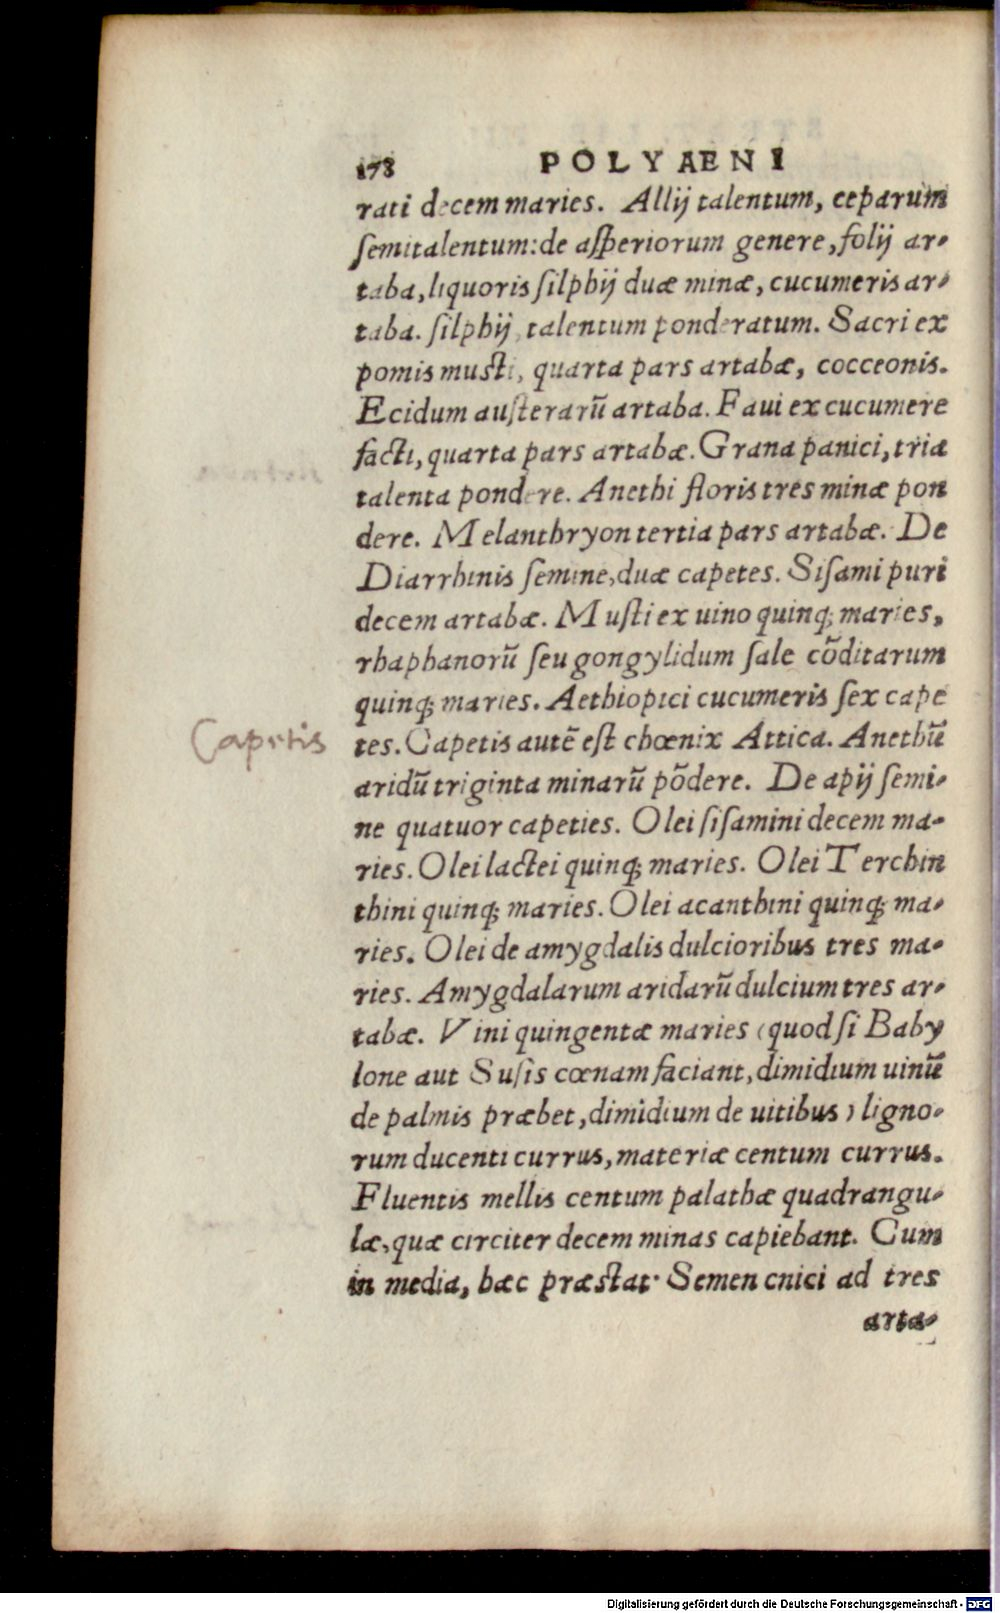 178 POLYAENI
rati decem maries. Allij talentum, ceparum
ſemitalentum: de aſperiorum genere, folij ar-
taba, liquoris ſilphij duæ minæ, cucumeris ar-
taba. ſilphij, talentum ponderatum. Sacri ex
pomis musti, quarta pars artabæ, cocceonis.
Ecidum auſterarū artaba. Faui ex cucumere
facti, quarta pars artabæ. Grana panici, tria
talenta pondere. Anethi floris tres minæ pon
dere. Melanthryon tertia pars artabæ. De
Diarrhinis ſemine, duæ capetes. Siſami puri
decem artabæ. Muſti ex uino quinq; maries,
rhaphanorū ſeu gongylidum ſale cōditarum
quinq; maries. Aethiopici cucumeris ſex cape
Capetis
tes. Capetis autē eſt chœnix Attica. Anethū
aridū triginta minarū pōdere. De apij ſemi-
ne quatuor capeties. Olei ſiſamini decem ma-
ries. Olei lactei quinq; maries. Olei Terebin
thini quinq; maries. Olei acanthini quinq; ma-
ries. Olei de amygdalis dulcioribus tres ma-
ries. Amygdalarum aridarū dulcium tres ar-
tabæ. Vini quingentæ maries (quod ſi Baby
lone aut Suſis cœnam faciant, dimidium uinū
de palmis præbet, dimidium de uitibus) ligno-
rum ducenti currus, materiæ centum currus.
Fluentis mellis centum palathæ quadrangu-
læ, quæ circiter decem minas capiebant. Cum
in media, hæc præstat. Semen cnici ad tres
arta-
Digitalisierung gefördert durch die Deutsche Forschungsgemeinschaft - DFG